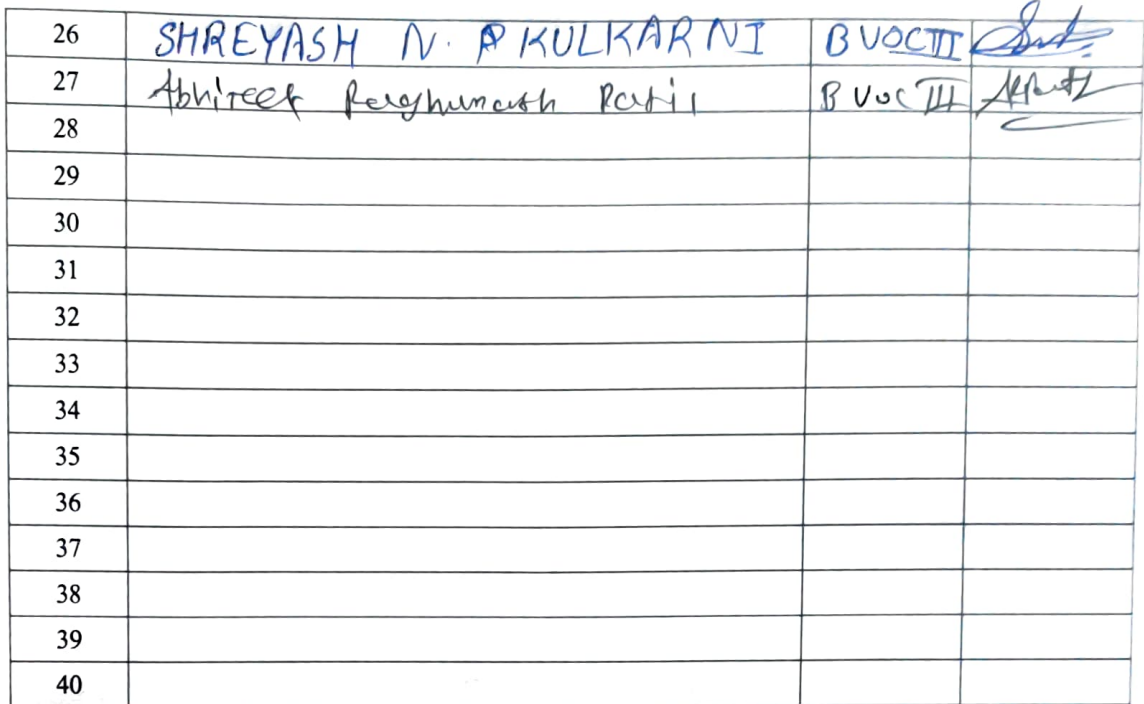 26 SHREYASH N. KULKARNI B VOC III
27 Abhijeet Raghunath Patil B VOC III
28
29
30
31
32
33
34
35
36
37
38
39
40